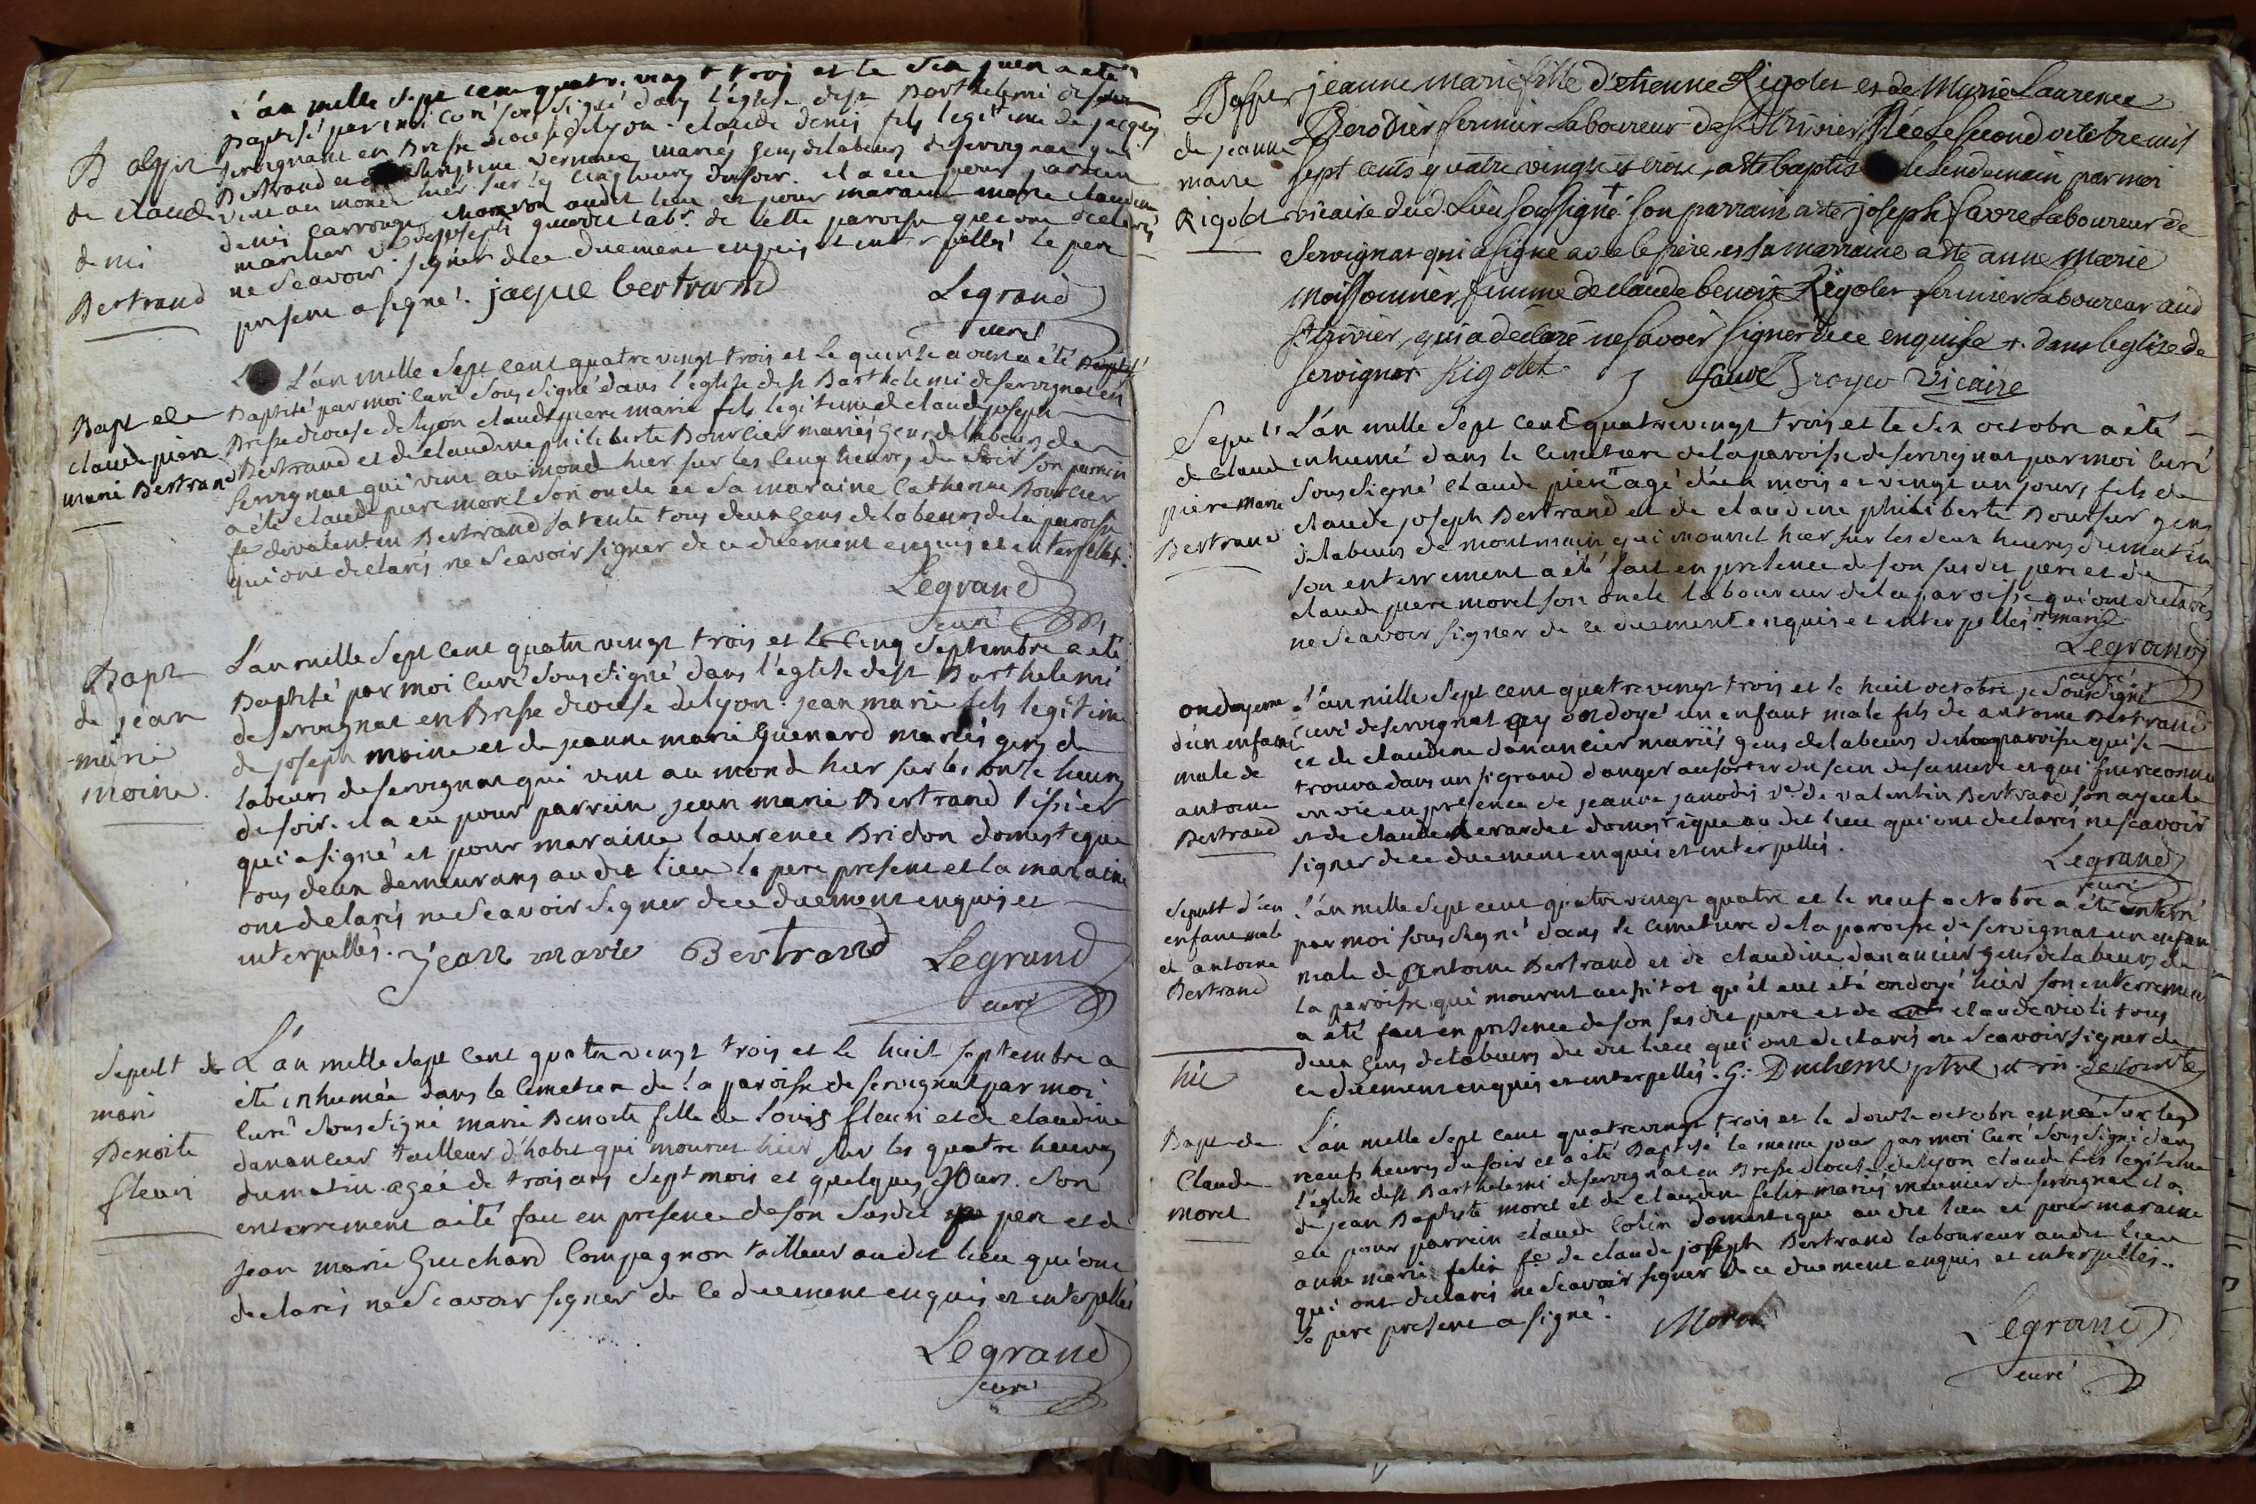 L'an mille sept cent quatre vingt trois et le six juin a eté
Baptisé par moi curé sous signé dans l'église de st Barthelemi de
servignat en Bresse diocese de lyon claude denis fils legitime de jacques
Bertrand et vernoux mariés gens de labeurs de servignat qui
vint au monde hier sur les cinq heures du soir. il a eu pour parrein
denis carronge audit lieu et pour maraine marie claudine
marchier joseph labr. de cette paroisse qui ont declarés
ne scavoir signer de ce duement enquis et interpellés le pere
present a signé. jaque bertrand Legrand
curé
Bapt
de claude
denis
Bertrand
L'an mille sept cent quatre vingt trois et le quinze a été
Baptisé par moi curé sous signé dans l'église de st Barthelemi de servignat en
Bresse diocese de lyon claude piere marie fils legitime de claude joseph
Bertrand et de claudine philiberte Bourlier mariés gens de labeurs de
servignat qui vint au monde hier sur les cinq heures du soir son parrein
a été claude piere morel son oncle et sa maraine catherine Bourlier
fe de valentin Bertrand sa tente tous deux gens de labeurs de la paroisse
qui ont declarés ne scavoir signer de ce duement enquis et interpellés.
Legrand
curé
Bapt de
claude piere
marie Bertrand
L'an mille sept cent quatre vingt trois et le cinq septembre a été
Baptisé par moi curé sous signé dans l'église de st Barthelemi
de servignat en Bresse diocese de lyon. jean marie fils legitime
de joseph moine et de jeanne marie Guenard mariés gens de
labeurs de servignat qui vint au monde hier sur les onze heures
du soir. il a eu pour parrein jean marie Bertrand
qui a signé et pour maraine laurence Bridon domestique
tous deux demeurans au dit lieu le pere present et la maraine
ont delarés ne scavoir signer de ce duement enquis et
interpellés. jean marie Bertrand Legrand
curé
Bapt
de jean
marie
moine
L'an mille sept cent quatre vingt trois et le huit septembre a
été inhumée dans le cimetiere de la paroisse de servignat par moi
curé sous signé marie Benoite fille de Louis fleuri et de claudine
danancier tailleur d'habit qui mourut hier sur les quatre heures
du matin agée de trois ans sept mois et quelques jours. son
enterrement a été fait en presence de son susdit pere et de
jean marie Guichard compagnon tailleur au dit lieu qui ont
declarés ne scavoir signer de ce duement enquis et interpellés
Legrand
curé
Sepult de
marie
Benoite
fleuri
Bapt
de jeanne
marie
Rigolet
jeanne marie fille d'etienne Rigolet et de Marie Laurence
Perodier fermier Laboureur de st trivier Née le second octobre mil
sept cents quatre vingt et trois, a été baptisé le lendemain par moi
vicaire dud. Lieu soussigné + son parrain a été joseph favre Laboureur de
Servignat qui a signé avec le père, et sa marraine a été anne marie
Moissonnier, femme de claude benoit Rigolet fermier Laboureur aud
st trivier, qui a déclaré ne savoir signer de ce enquise +. dans leglize de
servignat Rigolet favre vicaire
Sepult
de claude
piere marie
Bertrand
L'an mille sept cent quatre vingt trois et le six octobre a été
inhumé dans le cimetiere de la paroisse de servignat par moi curé
sous signé claude piere agé d'un mois et vingt un jours fils de
claude joseph Bertrand et de claudine philiberte Bourlier gens
de labeurs de montmain qui mourut hier sur les deux heures du matin
son enterrement a été fait en presence de son susdit pere et de
claude piere morel son oncle laboureur de la paroisse qui ont declarés
ne scavoir signer de ce duement enquis et interpellés. marie
Legrand
curé
ondoyement
d'un enfant
male de
antoine
Bertrand
L'an mille sept cent quatre vingt trois et le huit octobre je soussigné
curé de servignat ay ondoyé un enfant male fils de antoine Bertrand
et de claudine danancier mariés gens de labeurs de ma paroisse qui se
trouva dans un si grand danger au sortir du sein de sa mere et qui fut reconnu
en vie en presence de jeanne janodi ve. de valentin Bertrand son ayeule
et de claude domestique au dit lieu qui ont declarés ne scavoir
signer de ce duement enquis et interpellés.
Legrand
curé
Sepult d'un
enfant male
de antoine
Bertrand
L'an mille sept cent quatre vingt quatre et le neuf octobre a été enterré
par moi sous signé dans le cimetiere de la paroisse de servignat un enfan
male de Antoine Bertrand et de claudine danancier gens de labeurs de
la paroisse qui mourut aussitot qu'il eut été ondoyé hier son enterrement
a été fait en presence de son susdit pere et de claude violi tous
deux gens de labeurs du dit lieu qui ont declarés ne scavoir signer de
ce duement enquis et interpellés. G. Duchesne ptre
hic
Bapt de
Claude
morel
L'an mille sept cent quatre vingt trois et le douze octobre est né sur les
neufs heures du soir et a été Baptisé le meme jour par moi curé sous signé dans
l'église de st Barthelemi de servignat en Bresse diocese de lyon claude fils legitime
de jean Baptiste morel et de claudine felix mariés meunier de servignat il a
eu pour parrein claude colin domestique au dit lieu et pour maraine
anne marie felix fe. de claude joseph Bertrand laboureur audit lieu
qui ont declarés ne scavoir signer de ce duement enquis et interpellés.
le pere present a signé. Morel
Legrand
curé